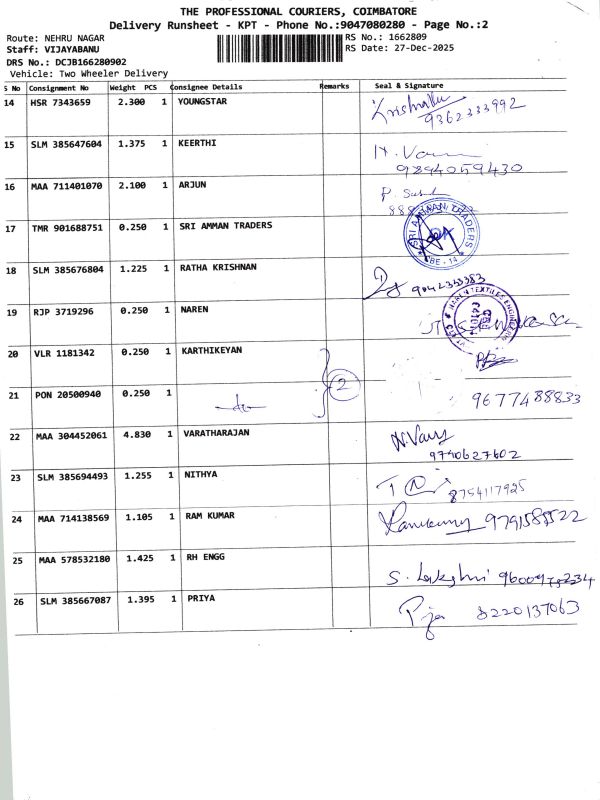 THE PROFESSIONAL COURIERS, COIMBATORE
Delivery Runsheet - KPT - Phone No.:9047080280 - Page No.:2
Route: NEHRU NAGAR RS No.: 1662809
Staff: VIJAYABANU RS Date: 27-Dec-2025
DRS No.: DCJB166280902
Vehicle: Two Wheeler Delivery
S No Consignment No Weight PCS Consignee Details Remarks Seal & Signature
14 HSR 7343659 2.300 1 YOUNGSTAR
9362333992
15 SLM 385647604 1.375 1 KEERTHI
9894059430
16 MAA 711401070 2.100 1 ARJUN
17 TMR 901688751 0.250 1 SRI AMMAN TRADERS
SRI AMMAN TRADERS
CBE - 14
18 SLM 385676804 1.225 1 RATHA KRISHNAN
19 RJP 3719296 0.250 1 NAREN
20 VLR 1181342 0.250 1 KARTHIKEYAN
21 PON 20500940 0.250 1 2 9677488833
22 MAA 304452061 4.830 1 VARATHARAJAN
9740627602
23 SLM 385694493 1.255 1 NITHYA
8754117925
24 MAA 714138569 1.105 1 RAM KUMAR
25 MAA 578532180 1.425 1 RH ENGG
26 SLM 385667087 1.395 1 PRIYA 8220137063